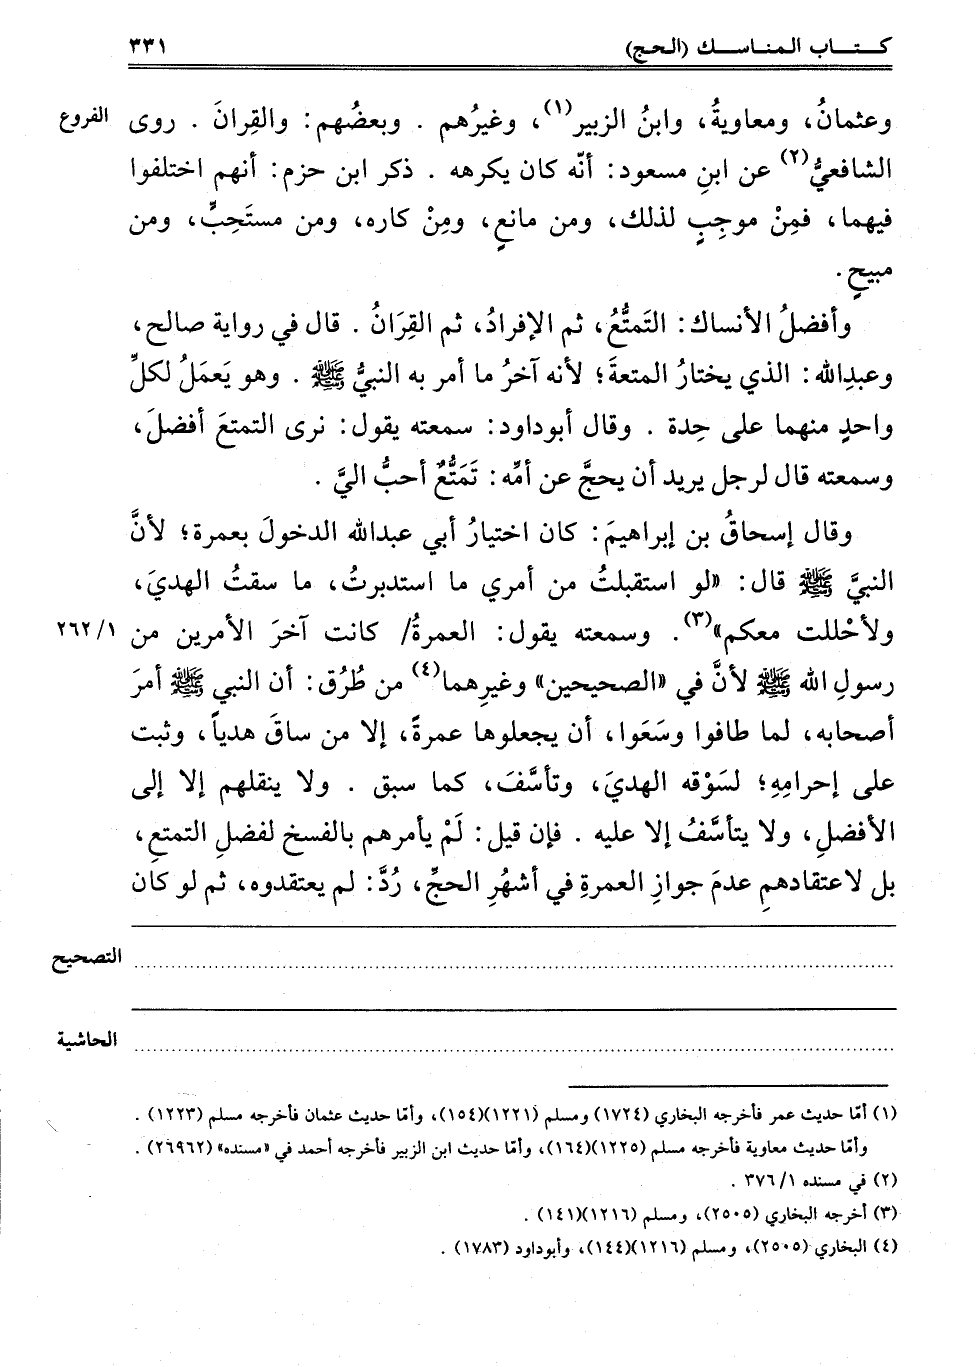 كتاب المناسك (الحج) ٣٣١
وعثمانُ، ومعاويةُ، وابنُ الزبير(١)، وغيرُهم . وبعضُهم: والقِرانَ . روى الفروع
الشافعيُّ(٢) عن ابنِ مسعود: أنّه كان يكرهه . ذكر ابن حزم: أنهم اختلفوا
فيهما، فمِنْ موجِبٍ لذلك، ومن مانعٍ، ومِنْ كاره، ومن مستَحِبٍّ، ومن
مبيحٍ .
وأفضلُ الأنساك: التَمتُّعُ، ثم الإفرادُ، ثم القِرَانُ . قال في رواية صالح،
وعبدِالله: الذي يختارُ المتعةَ؛ لأنه آخرُ ما أمر به النبيُّ ﷺ . وهو يَعمَلُ لكلِّ
واحدٍ منهما على حِدة . وقال أبوداود: سمعته يقول: نرى التمتعَ أفضلَ،
وسمعته قال لرجل يريد أن يحجَّ عن أمِّه: تَمَتُّعٌ أحبُّ اليَّ .
وقال إسحاقُ بن إبراهيمَ: كان اختيارُ أبي عبدالله الدخولَ بعمرة؛ لأنَّ
النبيَّ ﷺ قال: «لو استقبلتُ من أمري ما استدبرتُ، ما سقتُ الهديَ،
ولأحْللت معكم»(٣). وسمعته يقول: العمرةُ/ كانت آخرَ الأمرين من ٢٦٢/١
رسولِ الله ﷺ لأنَّ في «الصحيحين» وغيرِهما(٤) من طُرُق: أن النبي ﷺ أمرَ
أصحابه، لما طافوا وسَعَوا، أن يجعلوها عمرةً، إلا من ساقَ هدياً، وثبت
على إحرامِهِ؛ لسَوْقه الهديَ، وتأسَّفَ، كما سبق . ولا ينقلهم إلا إلى
الأفضلِ، ولا يتأسَّفُ إلا عليه . فإن قيل: لَمْ يأمرهم بالفسخ لفضلِ التمتعِ،
بل لاعتقادهمِ عدمَ جوازِ العمرةِ في أشهُرِ الحجِّ، رُدَّ: لم يعتقدوه، ثم لو كان
التصحيح
الحاشية
(١) أمّا حديث عمر فأخرجه البخاري (١٧٢٤) ومسلم (١٢٢١)(١٥٤)، وأمّا حديث عثمان فأخرجه مسلم (١٢٢٣) .
وأمّا حديث معاوية فأخرجه مسلم (١٢٢٥)(١٦٤)، وأمّا حديث ابن الزبير فأخرجه أحمد في «مسنده» (٢٦٩٦٢) .
(٢) في مسنده ٣٧٦/١ .
(٣) أخرجه البخاري (٢٥٠٥)، ومسلم (١٢١٦)(١٤١) .
(٤) البخاري (٢٥٠٥)، ومسلم (١٢١٦)(١٤٤)، وأبوداود (١٧٨٣) .